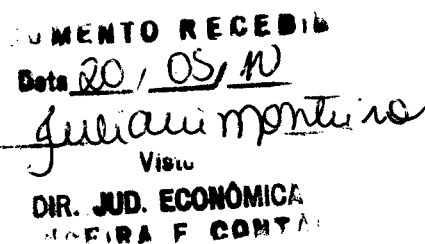 UMENTO RECEBID
Data 20 / 05 / 10
Juliani Monteiro
Visto
DIR. JUD. ECONÔMICA
EIRA E CONTA